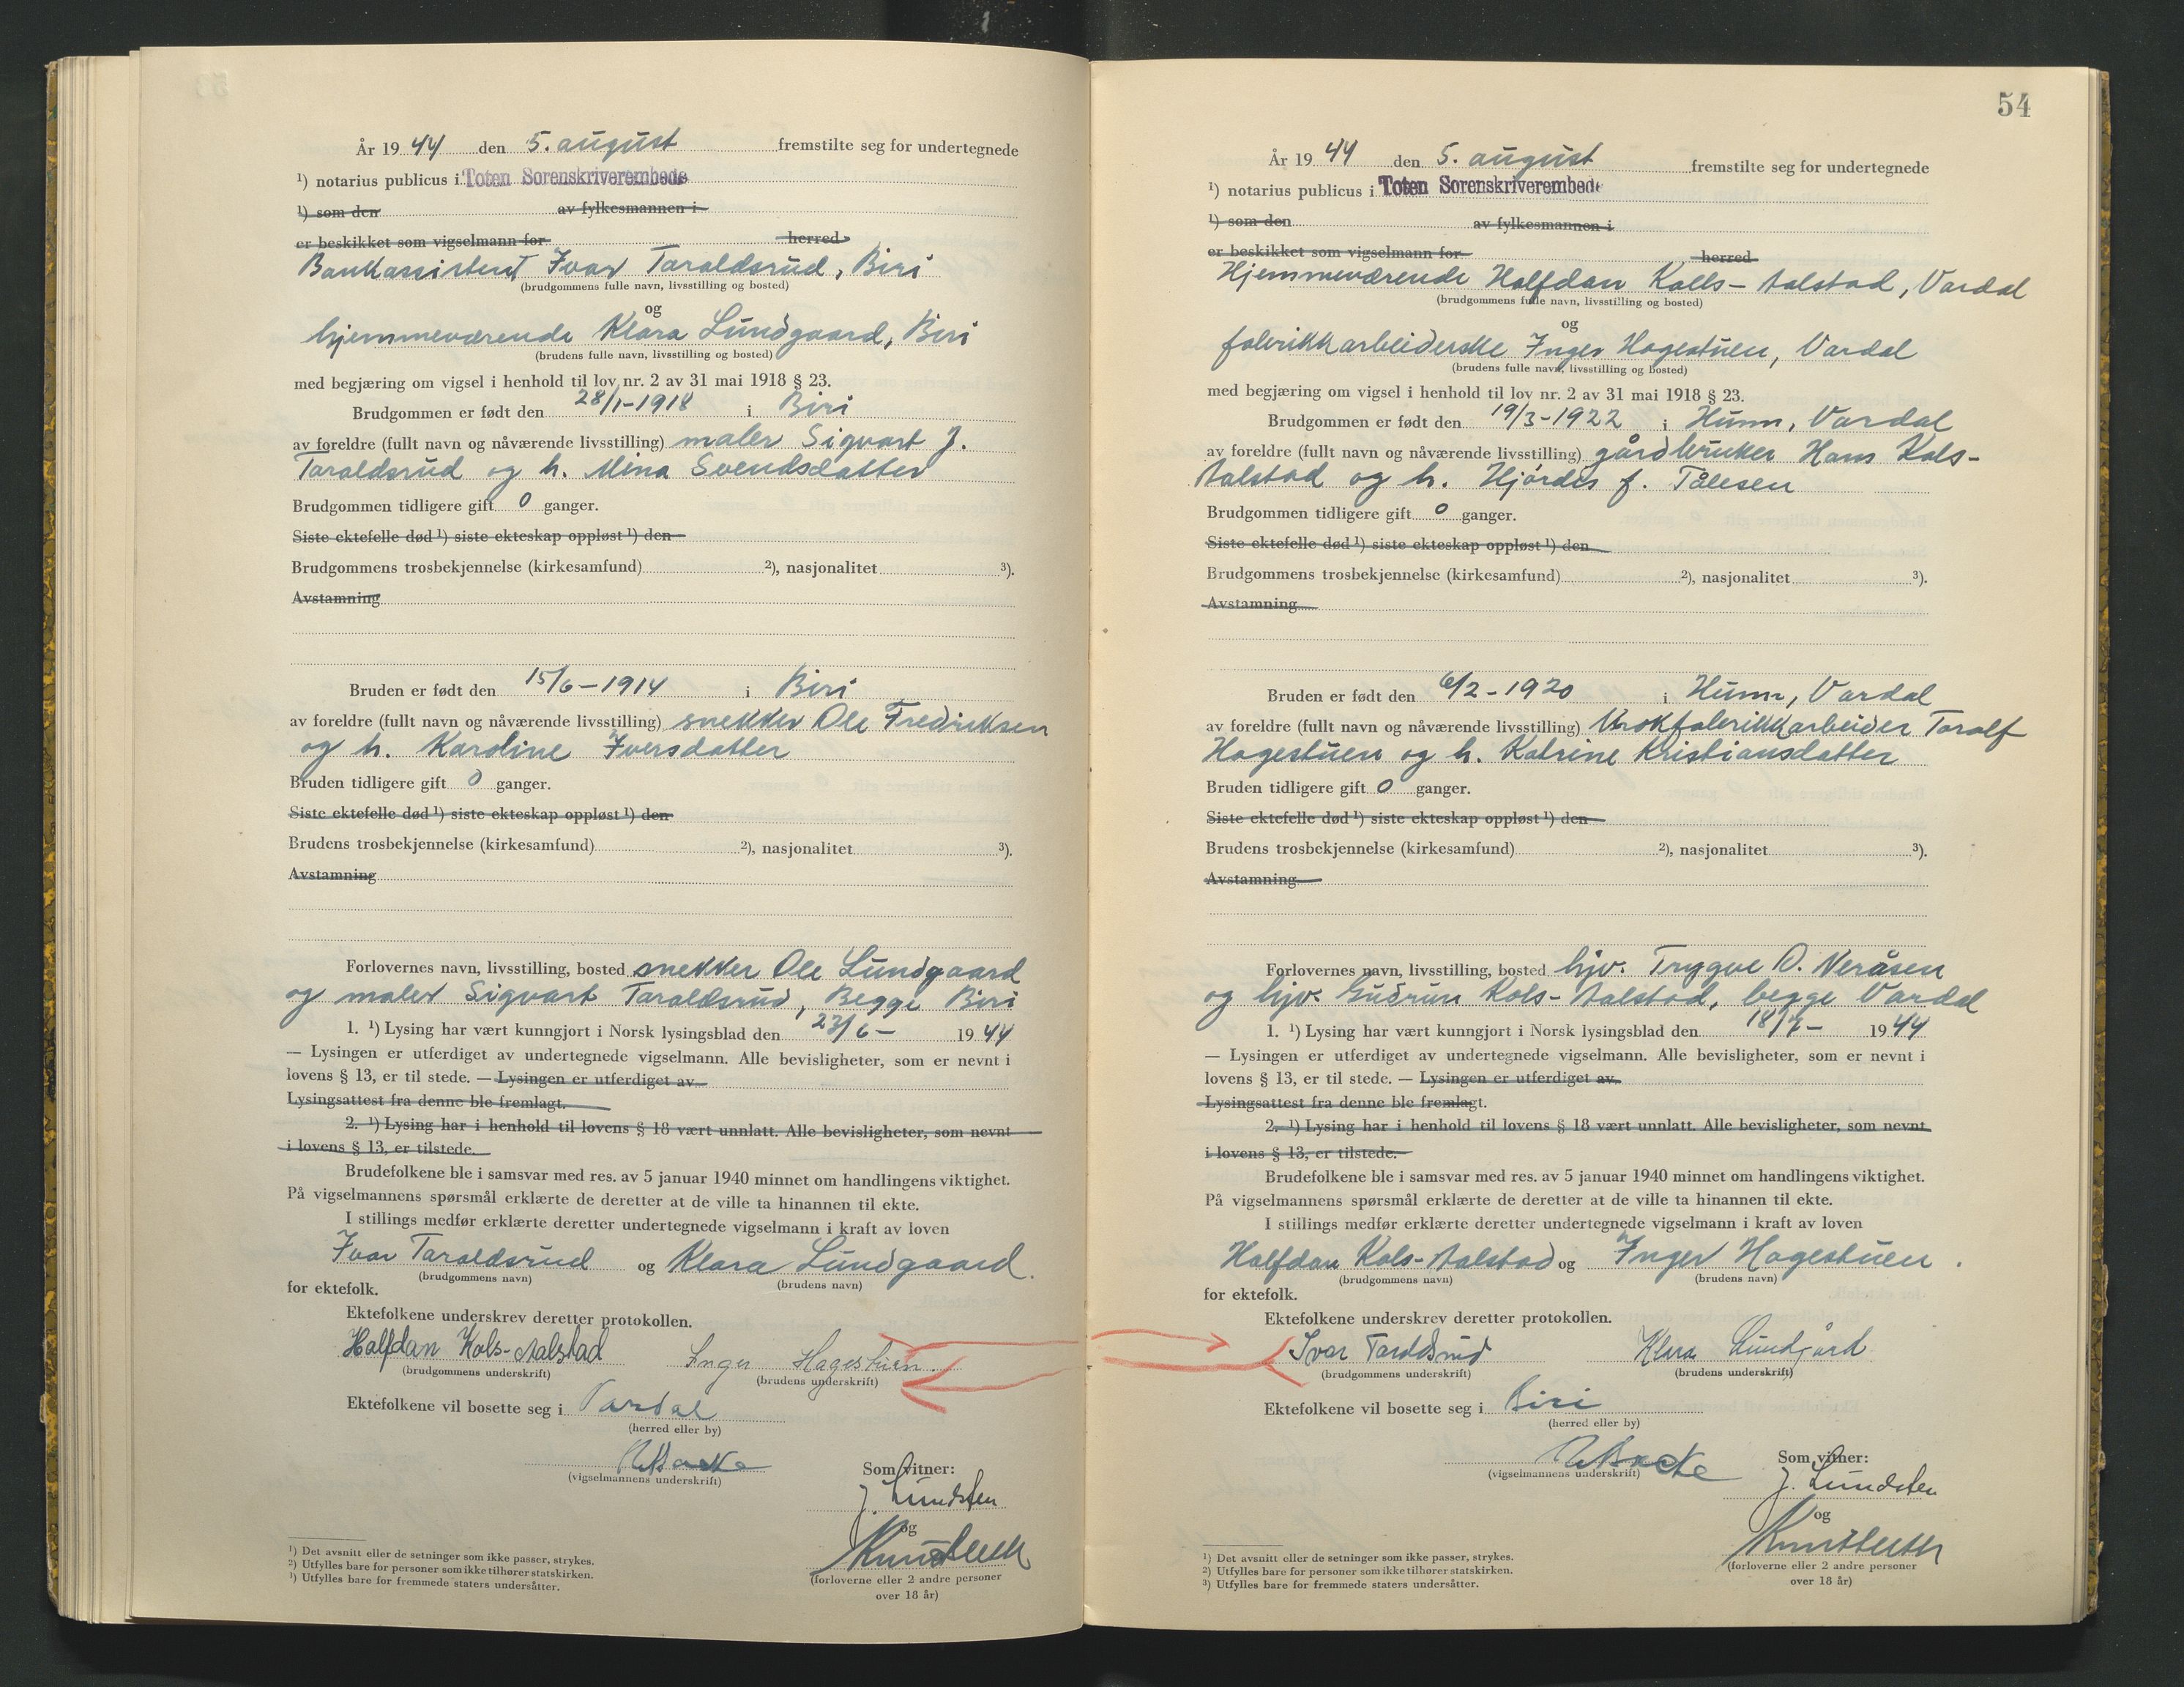 År 19 44 den 5. august fremstilte seg for undertegnede
¹) notarius publicus i Toten Sorenskriverembede
¹) som den av fylkesmannen i
er beskikket som vigselmann for herred
Bankassistent Ivar Taraldsrud, Biri
(brudgommens fulle navn, livsstilling og bosted)
og
hjemmeværende Klara Lundgaard, Biri
(brudens fulle navn, livsstilling og bosted)
med begjæring om vigsel i henhold til lov nr. 2 av 31 mai 1918 § 23.
Brudgommen er født den 28/1-1918 i Biri
av foreldre (fullt navn og nåværende livsstilling) maler Sigvart J.
Taraldsrud og h. Mina Svendsdatter
Brudgommen tidligere gift 0 ganger.
Siste ektefelle død ¹) siste ekteskap oppløst ¹) den
Brudgommens trosbekjennelse (kirkesamfund) ²), nasjonalitet ³).
Avstamning
Bruden er født den 15/6-1914 i Biri
av foreldre (fullt navn og nåværende livsstilling) snekker Ole Fredriksen
og h. Karoline Iversdatter
Bruden tidligere gift 0 ganger.
Siste ektefelle død ¹) siste ekteskap oppløst ¹) den
Brudens trosbekjennelse (kirkesamfund) ²), nasjonalitet ³).
Avstamning
Forlovernes navn, livsstilling, bosted snekker Ole Lundgaard
og maler Sigvart Taraldsrud, Begge Biri
1. ¹) Lysing har vært kunngjort i Norsk lysingsblad den 23/6- 1944
— Lysingen er utferdiget av undertegnede vigselmann. Alle bevisligheter, som er nevnt i
lovens § 13, er til stede. — Lysingen er utferdiget av
Lysingsattest fra denne ble fremlagt.
2. ¹) Lysing har i henhold til lovens § 18 vært unnlatt. Alle bevisligheter, som nevnt
i lovens § 13, er tilstede.
Brudefolkene ble i samsvar med res. av 5 januar 1940 minnet om handlingens viktighet.
På vigselmannens spørsmål erklærte de deretter at de ville ta hinannen til ekte.
I stillings medfør erklærte deretter undertegnede vigselmann i kraft av loven
Ivar Taraldsrud og Klara Lundgaard.
(brudgommens navn) (brudens navn)
for ektefolk.
Ektefolkene underskrev deretter protokollen.
Halfdan Kols-Aalstad Inger Hagestuen.
(brudgommens underskrift) (brudens underskrift)
Ektefolkene vil bosette seg i Vardal
(herred eller by)
(vigselmannens underskrift)
Som vitner:
J. Lundsten
og
(forloverne eller 2 andre personer
over 18 år)
¹) Det avsnitt eller de setninger som ikke passer, strykes.
²) Utfylles bare for personer som ikke tilhører statskirken.
³) Utfylles bare for fremmede staters undersåtter.
54
År 19 44 den 5. august fremstilte seg for undertegnede
¹) notarius publicus i Toten Sorenskriverembede
¹) som den av fylkesmannen i
er beskikket som vigselmann for herred
Hjemmeværende Halfdan Kolls-Aalstad, Vardal
(brudgommens fulle navn, livsstilling og bosted)
og
fabrikkarbeiderske Inger Hagestuen, Vardal
(brudens fulle navn, livsstilling og bosted)
med begjæring om vigsel i henhold til lov nr. 2 av 31 mai 1918 § 23.
Brudgommen er født den 19/3-1922 i Hunn, Vardal
av foreldre (fullt navn og nåværende livsstilling) gårdbruker Hans Kols-
Aalstad og h. Hjørdis f. Tålesen
Brudgommen tidligere gift 0 ganger.
Siste ektefelle død ¹) siste ekteskap oppløst ¹) den
Brudgommens trosbekjennelse (kirkesamfund) ²), nasjonalitet ³).
Avstamning
Bruden er født den 6/2-1920 i Hunn, Vardal
av foreldre (fullt navn og nåværende livsstilling) Krokfabrikkarbeider Taralf
Hagestuen og h. Katrine Kristiansdatter
Bruden tidligere gift 0 ganger.
Siste ektefelle død ¹) siste ekteskap oppløst ¹) den
Brudens trosbekjennelse (kirkesamfund) ²), nasjonalitet ³).
Avstamning
Forlovernes navn, livsstilling, bosted hjv. Trygve O. Neråsen
og hjv. Gudrun Kols-Aalstad, begge Vardal
1. ¹) Lysing har vært kunngjort i Norsk lysingsblad den 18/7- 1944
— Lysingen er utferdiget av undertegnede vigselmann. Alle bevisligheter, som er nevnt i
lovens § 13, er til stede. — Lysingen er utferdiget av
Lysingsattest fra denne ble fremlagt.
2. ¹) Lysing har i henhold til lovens § 18 vært unnlatt. Alle bevisligheter, som nevnt
i lovens § 13, er tilstede.
Brudefolkene ble i samsvar med res. av 5 januar 1940 minnet om handlingens viktighet.
På vigselmannens spørsmål erklærte de deretter at de ville ta hinannen til ekte.
I stillings medfør erklærte deretter undertegnede vigselmann i kraft av loven
Halfdan Kols-Aalstad og Inger Hagestuen.
(brudgommens navn) (brudens navn)
for ektefolk.
Ektefolkene underskrev deretter protokollen.
Ivar Taraldsrud Klara Lundgård
(brudgommens underskrift) (brudens underskrift)
Ektefolkene vil bosette seg i Biri
(herred eller by)
(vigselmannens underskrift)
Som vitner:
J. Lundsten
og
(forloverne eller 2 andre personer
over 18 år)
¹) Det avsnitt eller de setninger som ikke passer, strykes.
²) Utfylles bare for personer som ikke tilhører statskirken.
³) Utfylles bare for fremmede staters undersåtter.